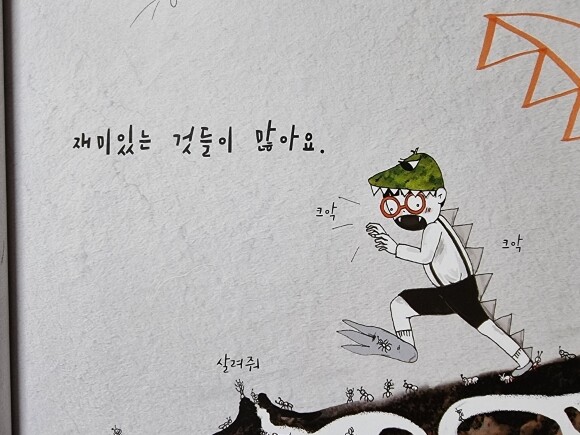 재미있는 것들이 많아요.
크악
크악
살려줘